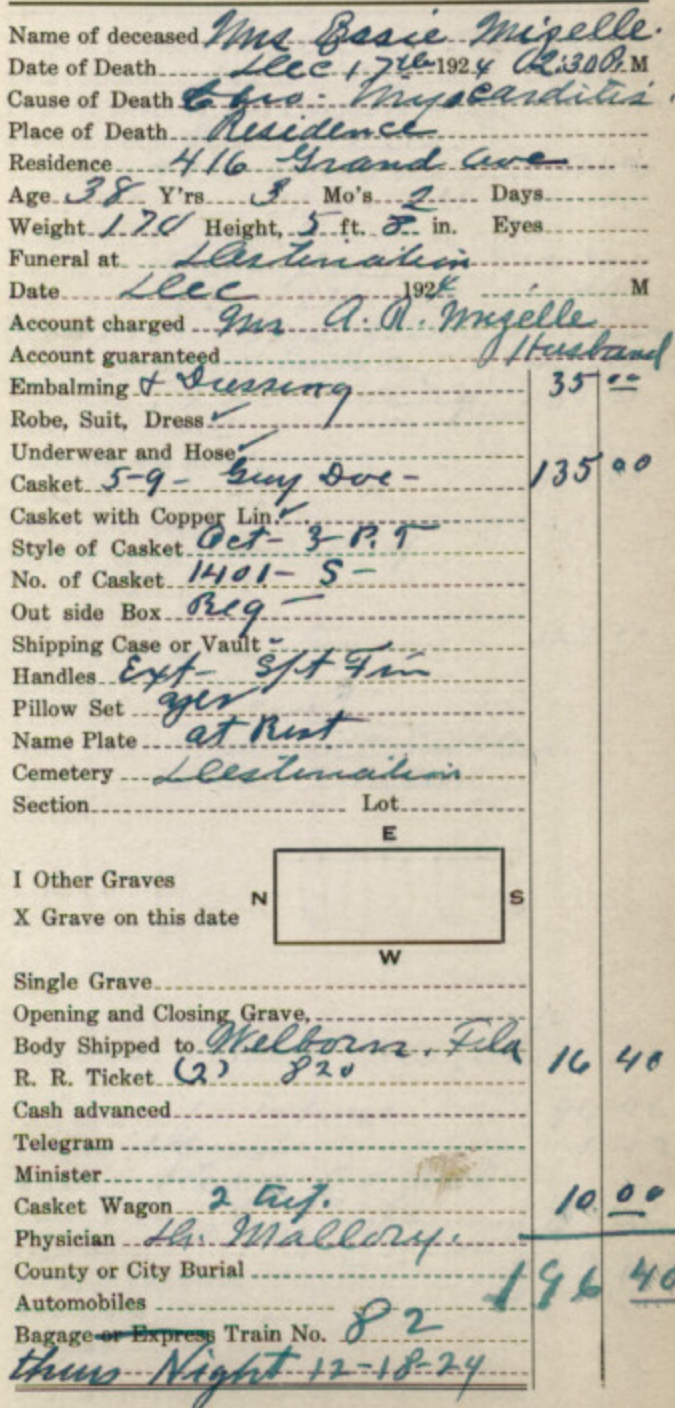 Name of deceased Mrs Essie Mizelle.
Date of Death Dec 17th 1924 @ 2:30 P. M
Cause of Death Chro - Myocarditis.
Place of Death Residence
Residence 416 Grand Ave
Age 38 Y'rs 3 Mo's 2 Days
Weight 170 Height, 5 ft. 8 in. Eyes
Funeral at Destination
Date Dec 1924 M
Account charged Mr A. R. Mizelle
Account guaranteed Husband
Embalming & Dressing 35 00
Robe, Suit, Dress ✓
Underwear and Hose ✓
Casket 5-9 - Grey Doe - 135 00
Casket with Copper Lin. ✓
Style of Casket Oct - 3 P. T
No. of Casket 1401 - S -
Out side Box Reg -
Shipping Case or Vault -
Handles Ext - S/t Fin
Pillow Set yes
Name Plate at Rest
Cemetery Destination
Section Lot
E
I Other Graves
N S
X Grave on this date
W
Single Grave
Opening and Closing Grave,
Body Shipped to Welborn, Fla 16 40
R. R. Ticket (2) 820
Cash advanced
Telegram
Minister
Casket Wagon 2 10 00
Physician Dr. Mallory.
County or City Burial 196 40
Automobiles
Bagage or Express Train No. 82
thurs Night 12-18-24